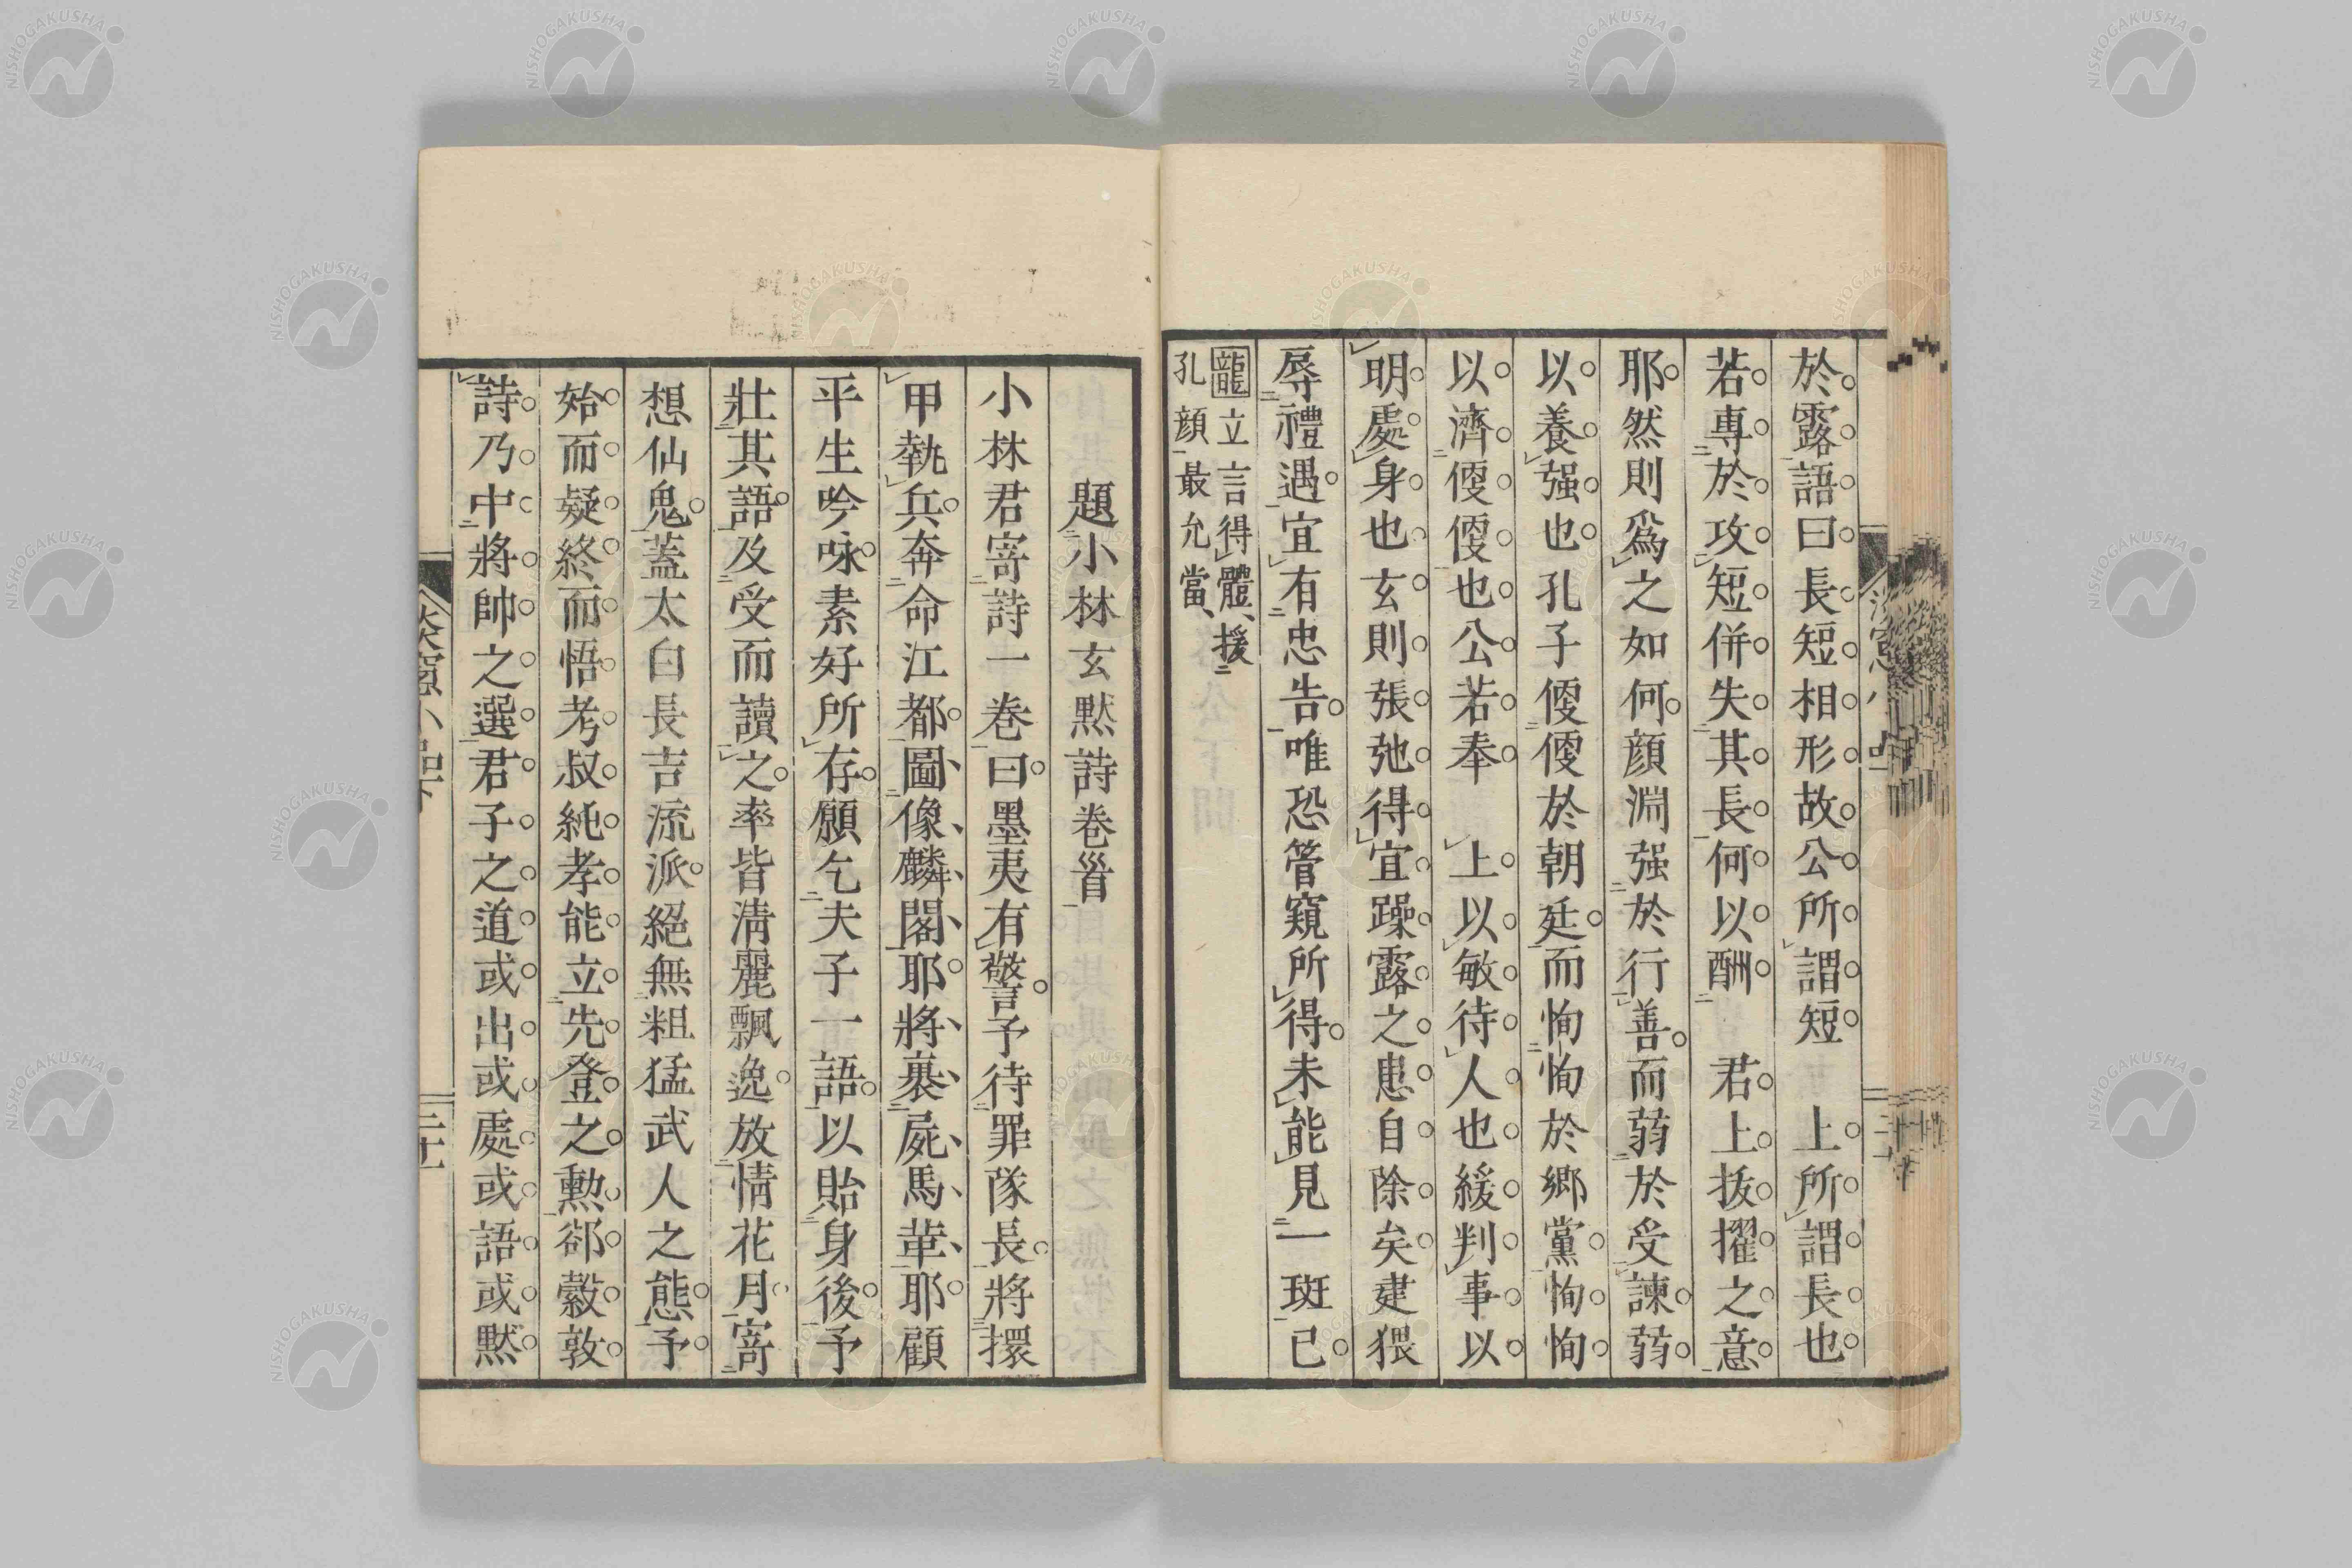 於露語曰長短相形故公所謂短　上所謂長也
若專於攻短併失其長何以酬　君上抜擢之意
耶然則爲之如何顔淵强於行善而弱於受諫弱
以養强也孔子偄偄於朝廷而恂恂於郷黨恂恂
以濟偄偄也公若奉　上以敏待人也緩判事以
明處身也玄則張弛得宜躁露之患自除矣建猥
辱禮遇宜有忠告唯恐管窺所得未能見一斑已
龍立言得體援
孔顔最允當
題小林玄黙詩卷首
小林君寄詩一卷曰墨夷有警予待罪隊長將擐
甲執兵奔命江都圖像麟閣耶將裹屍馬革耶顧
平生吟咏素好所存願乞夫子一語以貽身後予
壯其語及受而讀之率皆淸麗飄逸放情花月寄
想仙鬼蓋太白長吉流派絕無粗猛武人之態予
始而疑終而悟考叔純孝能立先登之勲郤縠敦
詩乃中將帥之選君子之道或出或處或語或黙
NISHOGAKUSHA